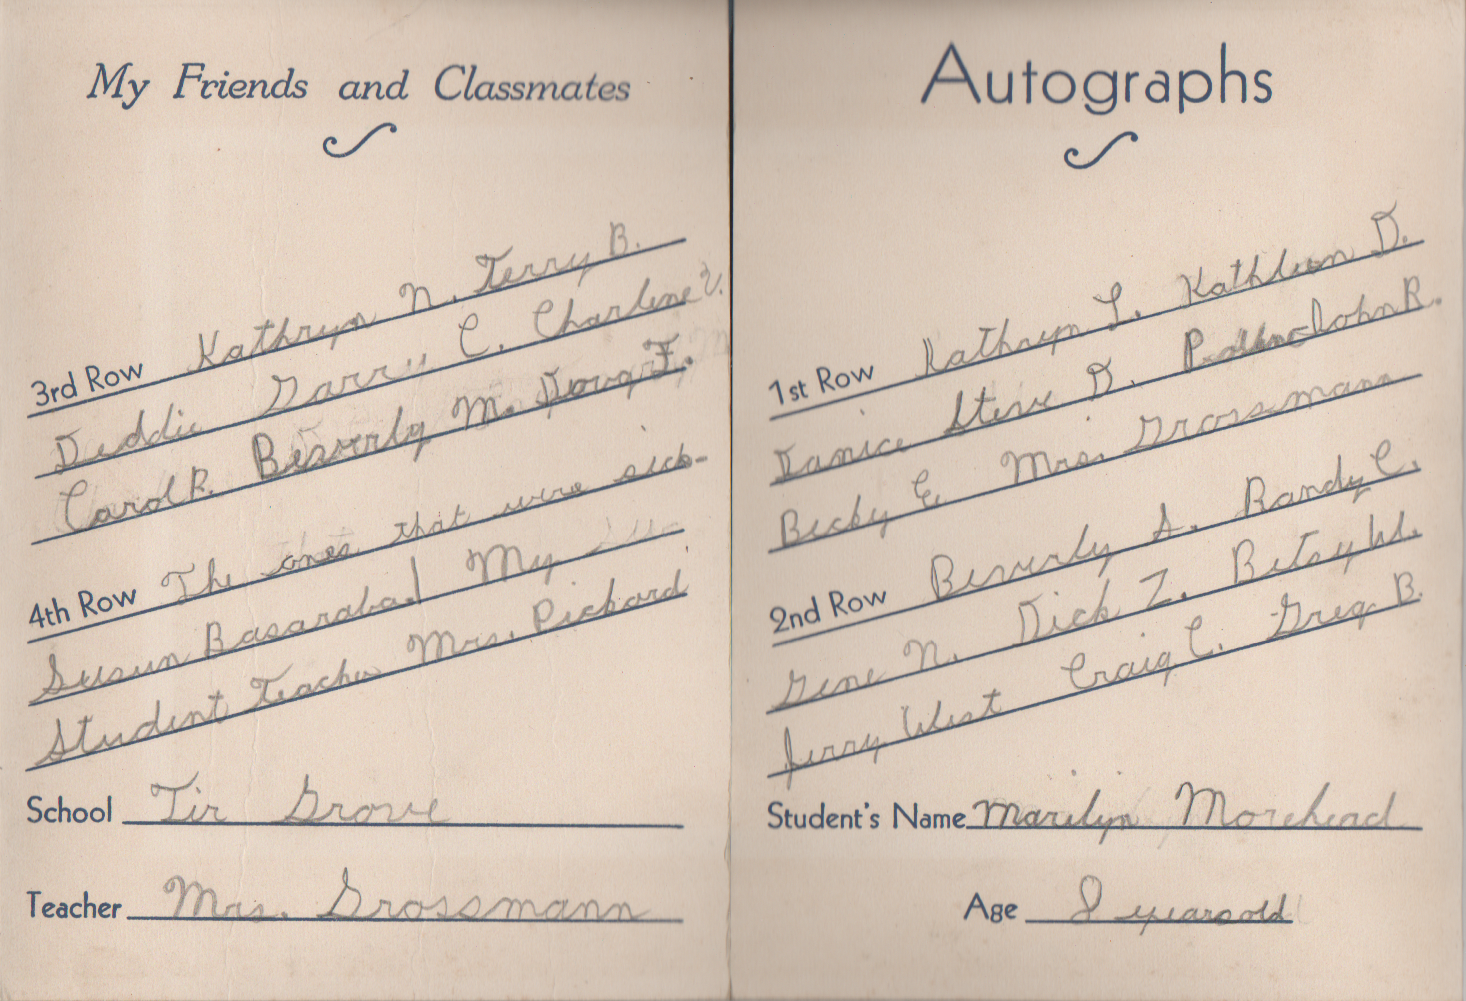 My Friends and Classmates
3rd Row Kathryn N. Terry B.
Deddie Garry C. Charlene V.
Carol R. Beverly M. Doug F.
4th Row The ones that were sick-
Susun Basaraba My
Student Teacher Mrs. Pickard
School Fir Grove
Teacher Mrs. Grossmann
Autographs
1st Row Kathryn L. Kathleen D.
Janice Steve D. John R.
Becky E. Mrs. Grossmann
2nd Row Beverly S. Randy C.
Gene N. Dick Z. Betsy W.
Jerry West Craig C. Greg B.
Student's Name Marilyn Morehead
Age 8 years old